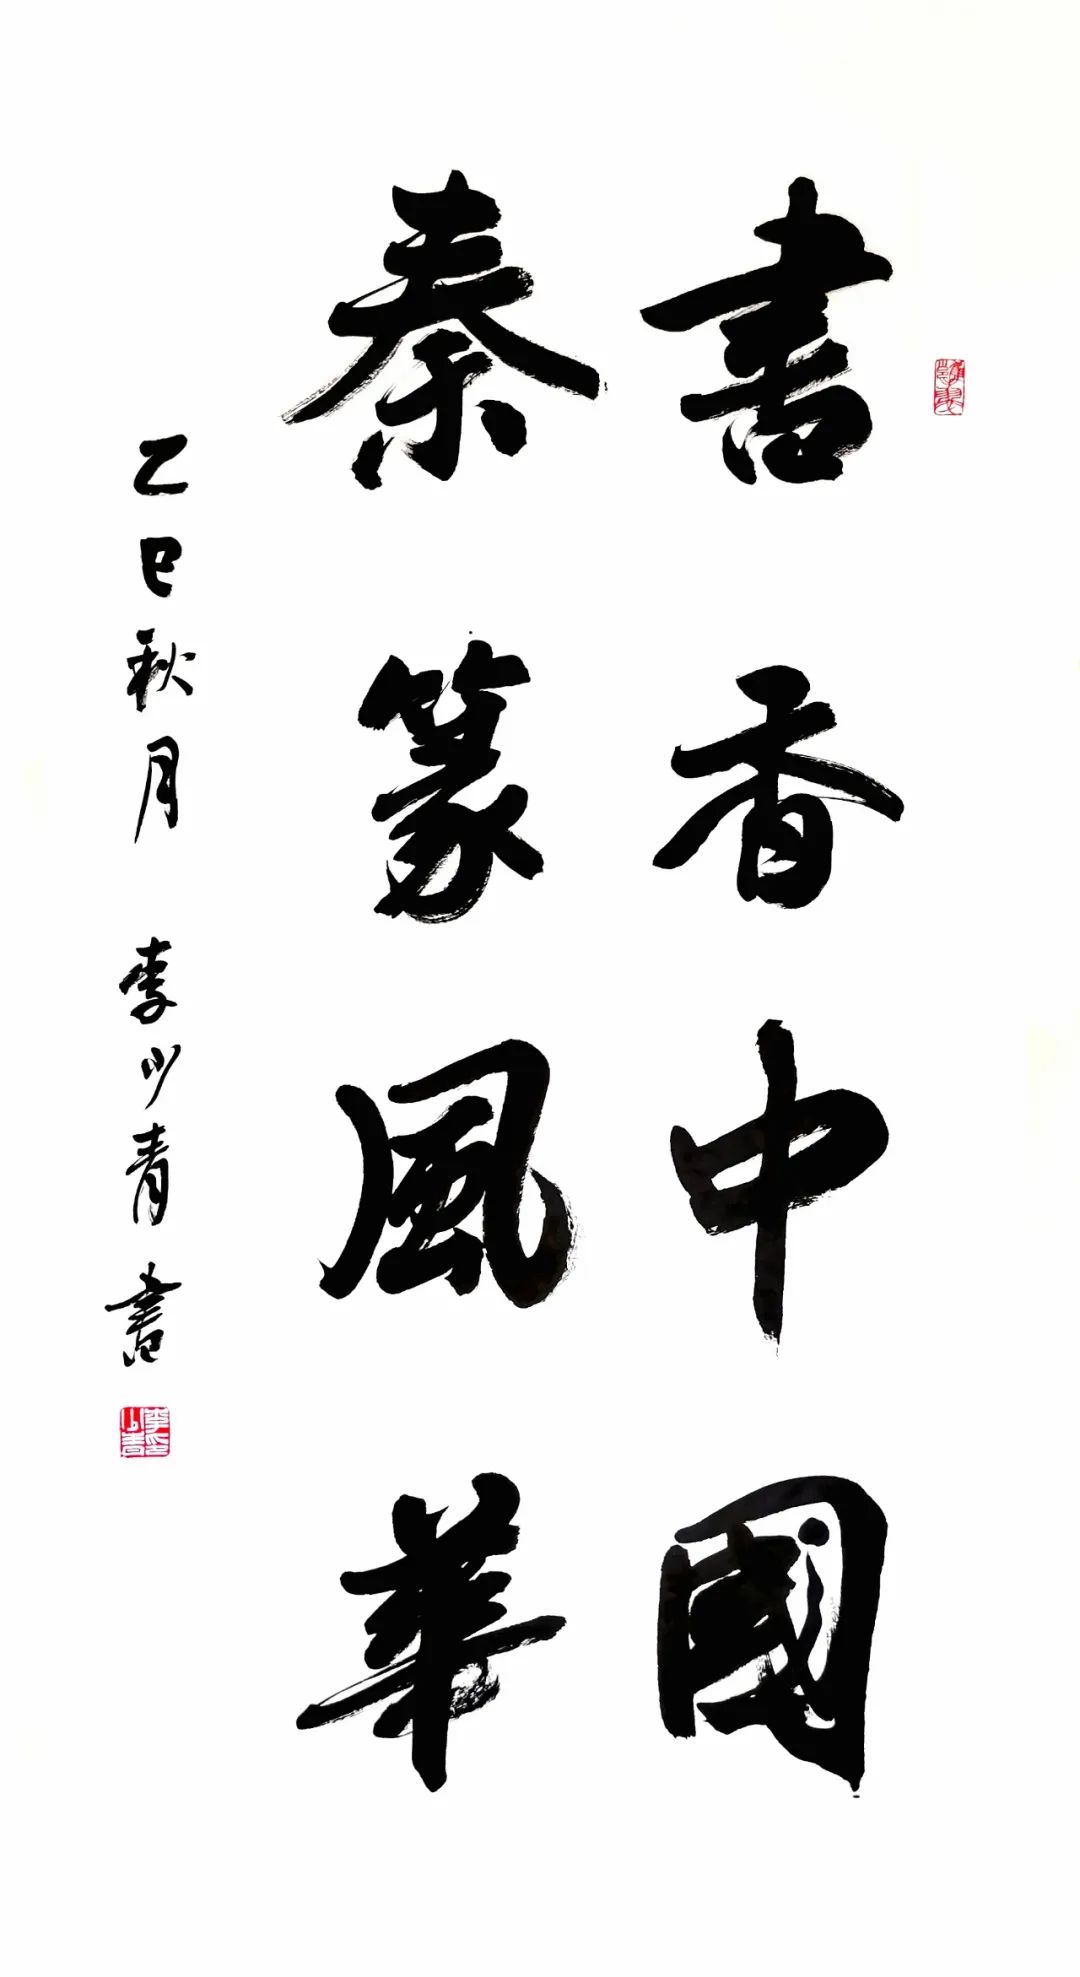 書香中國
秦篆風華
乙巳秋月 李少青書